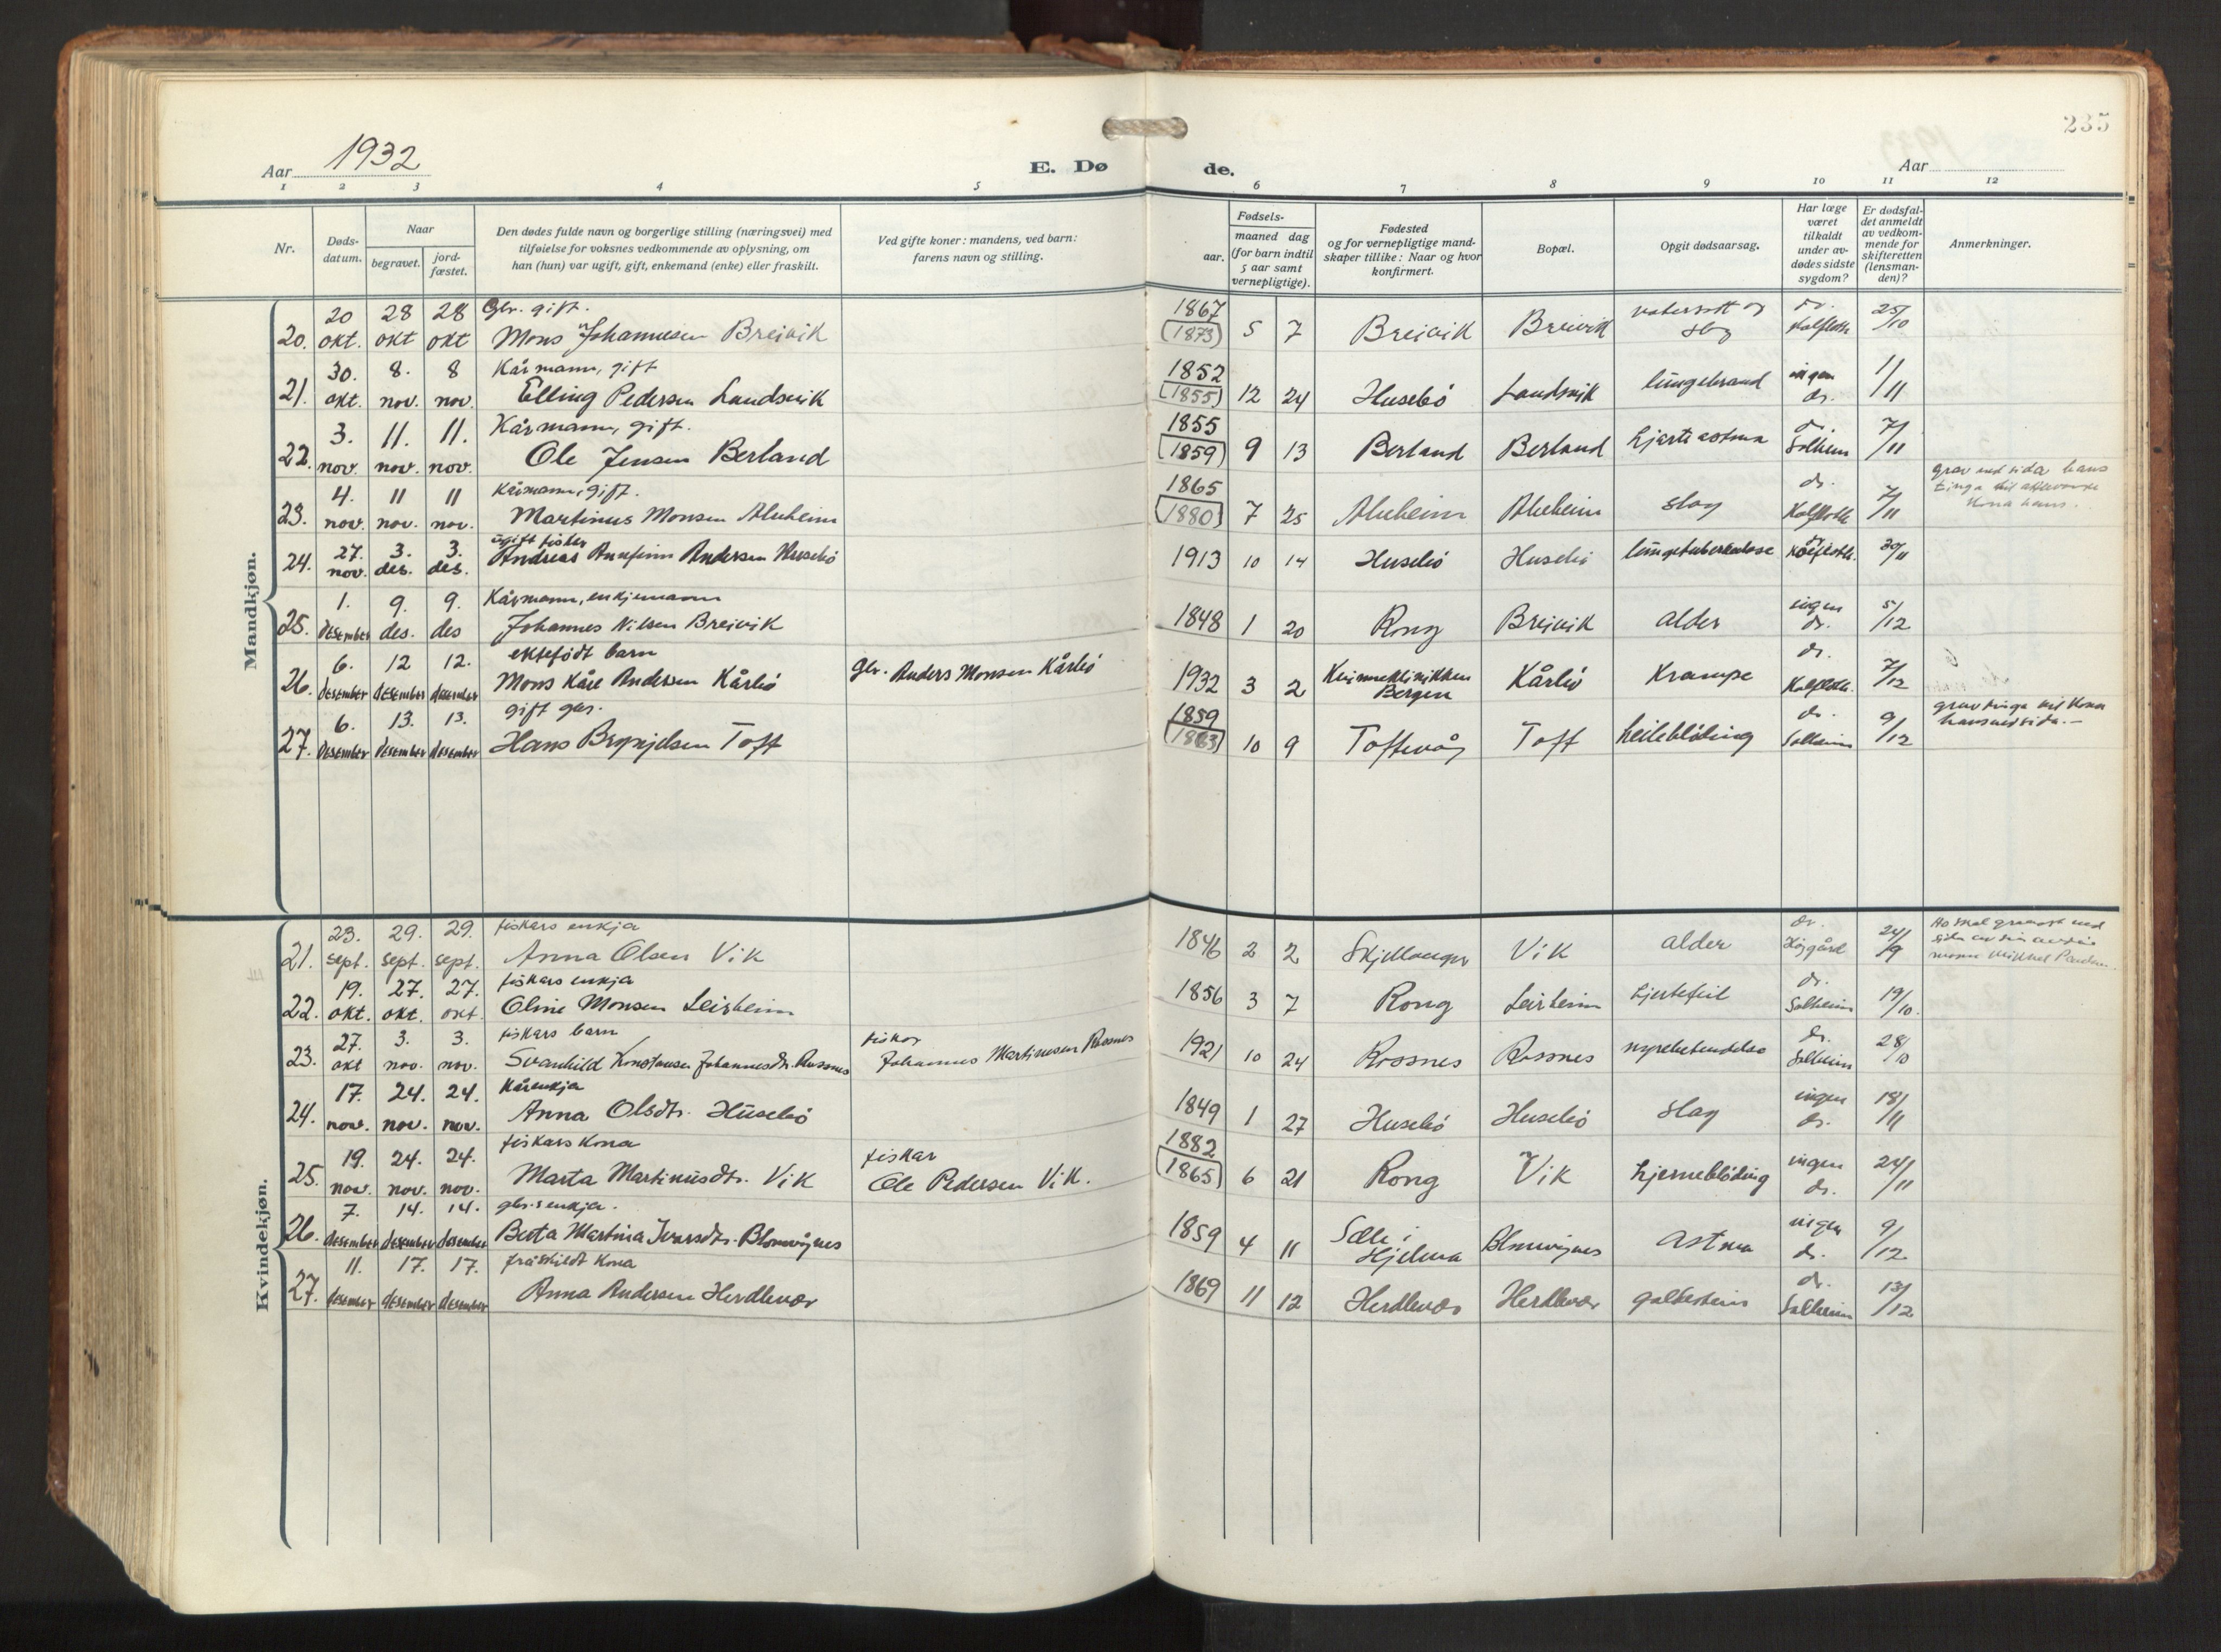 235
Aar 1932
E. Dø
de.
Aar
1 2 3 4 5 6 7 8 9 10 11 12
Nr.
Døds-
datum.
Naar
begravet.
jord-
fæstet.
Den dødes fulde navn og borgerlige stilling (næringsvei) med
tilføielse for voksnes vedkommende av oplysning, om
han (hun) var ugift, gift, enkemand (enke) eller fraskilt.
Ved gifte koner: mandens, ved barn:
farens navn og stilling.
Fødsels-
aar.
maaned dag
(for barn indtil
5 aar samt
vernepligtige).
Fødested
og for vernepligtige mand-
skaper tillike: Naar og hvor
konfirmert.
Bopæl.
Opgit dødsaarsag.
Har læge
været
tilkaldt
under av-
dødes sidste
sygdom?
Er dødsfal-
det anmeldt
av vedkom-
mende for
skifteretten
(lensman-
den)?
Anmerkninger.
Mandkjøn.
20 28 28 Gbr. gift. 1867 dr. 25/10
20. okt. okt okt Mons Johannesen Breivik (1873) 5 7 Breivik Breivik vatersott og slag Kalfloth
30. 8. 8 Kårmann, gift 1852 ingen 1/11
21. okt. nov. nov. Elling Pedersen Landsvik (1855) 12 24 Husebö Landsvik lungebrand dr.
3. 11. 11. Kårmann, gift. 1855 dr. 7/11
22. nov. nov. nov. Ole Jensen Berland (1859) 9 13 Berland Berland hjarteastma Solheim
4. 11 11 Kårmann, gift. 1865 dr. 7/11 grav ved sida hans
23. nov. nov. nov. Martinus Monsen Alvheim (1880) 7 25 Alvheim Alvheim slag Kalfloth tinga til
kona hans.
27. 3. 3. ugift fisker
24. nov. des. des. Andreas Andersen Husebö 1913 10 14 Husebö Husebö lungetuberkulose Kalfloth. 30/11
1. 9. 9. Kårmann, enkjemann ingen 5/12
25. desember des. des Johannes Nilsen Breivik 1848 1 20 Rong Breivik alder dr.
6. 12 12. ektefödt barn dr. 7/12
26. desember desember desember Mons Kåre Andersen Kårbö gbr. Anders Monsen Kårbö 1932 3 2 Kvinneklinikken Bergen Kårbö Krampe Kalfloth.
6. 13. 13. gift gbr. 1859 dr. 9/12 grav tinga til kona
27. desember desember desember Hans Brynjelsen Toft (1863) 10 9 Toftevåg Toft heileblöding Solheim hans ved sida.—
Kvindekjøn.
23. 29. 29. fiskars enkja dr. 24/9
21. sept. sept. sept. Anna Olsen Vik 1846 2 2 Skjellanger Vik alder
19. 27. 27. fiskars enkja dr. 19/10.
22. okt. okt. okt. Oline Monsen Leirheim 1856 3 7 Rong Leirheim hjertefeil Solheim
27. 3. 3. fiskars barn fiskar dr. 28/10
23. okt nov. nov. Svanhild Konstanse Johannesdtr. Rossnes Johannes Martinusen Rossnes 1921 10 24 Rossnes Rossnes nyrebetendelse Solheim
17. 24. 24. Kårenkja ingen 18/11
24. nov. nov. nov. Anna Olsdtr. Husebö 1849 1 27 Husebö Husebö slag dr.
19. 24. 24. fiskars kona fiskar 1882 ingen 24/11
25. nov. nov. nov. Marta Martinusdtr. Vik Ole Pedersen Vik. (1865) 6 21 Rong Vik hjerneblöding dr.
7. 14. 14. gbr.s enkja. ingen 9/12
26. desember desember desember Berta Martina Ivarsdtr. Blomvågnes 1859 4 11 Sæle i Hjelma Blomvågnes astma dr.
11. 17. 17. fråskildt kona dr. 13/12
27. desember desember desember Anna Andersen Herdlevær 1869 11 12 Herdlevær Herdlevær gallestein Solheim